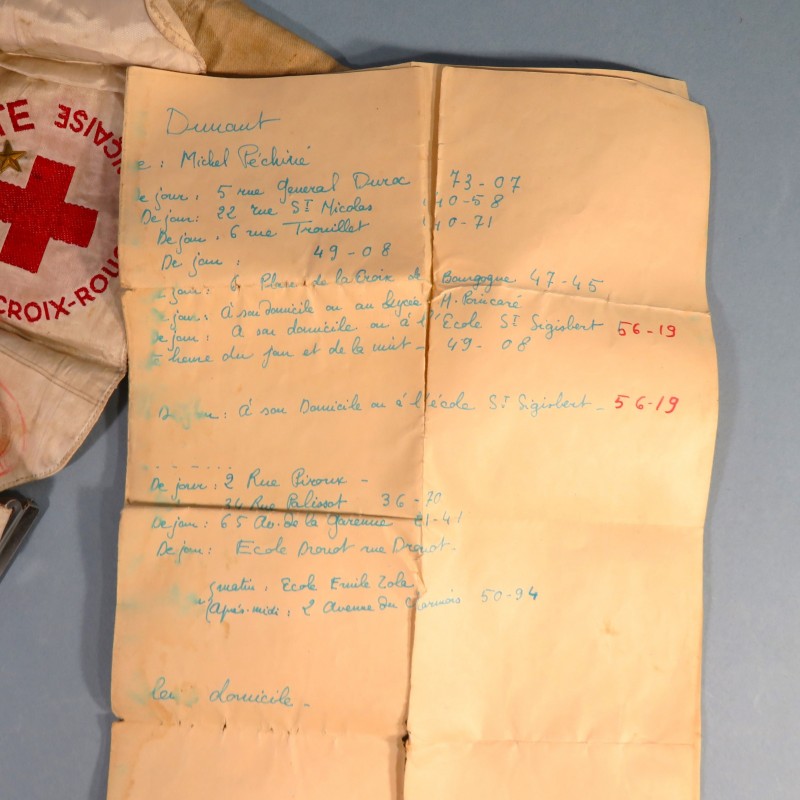 TE
ÇAISE
CROIX-ROU
Dunant
e : Michel Péchiné
e jour : 5 rue General Duroc 73-07
De jour : 22 rue ST Nicolas 40-58
De jour : 6 rue Trouillet 40-71
De jour : 49-08
jour : 6 Place de la Croix de Bourgogne 47-45
e jour : À son domicile ou au lycée H. Poincaré
De jour : A son domicile ou à l'Ecole ST Sigisbert 56-19
heure du jour et de la nuit - 49-08
De jour : À son Domicile ou à l'école ST Sigisbert - 56-19
De jour : 2 Rue Piroux -
34 Rue Palissot 36-70
De jour : 65 Av. de la Garenne 21-41
De jour : Ecole Drouot rue Drouot.
matin : Ecole Emile Zola
Après-midi : 2 Avenue du Charmois 50-94
leur domicile -